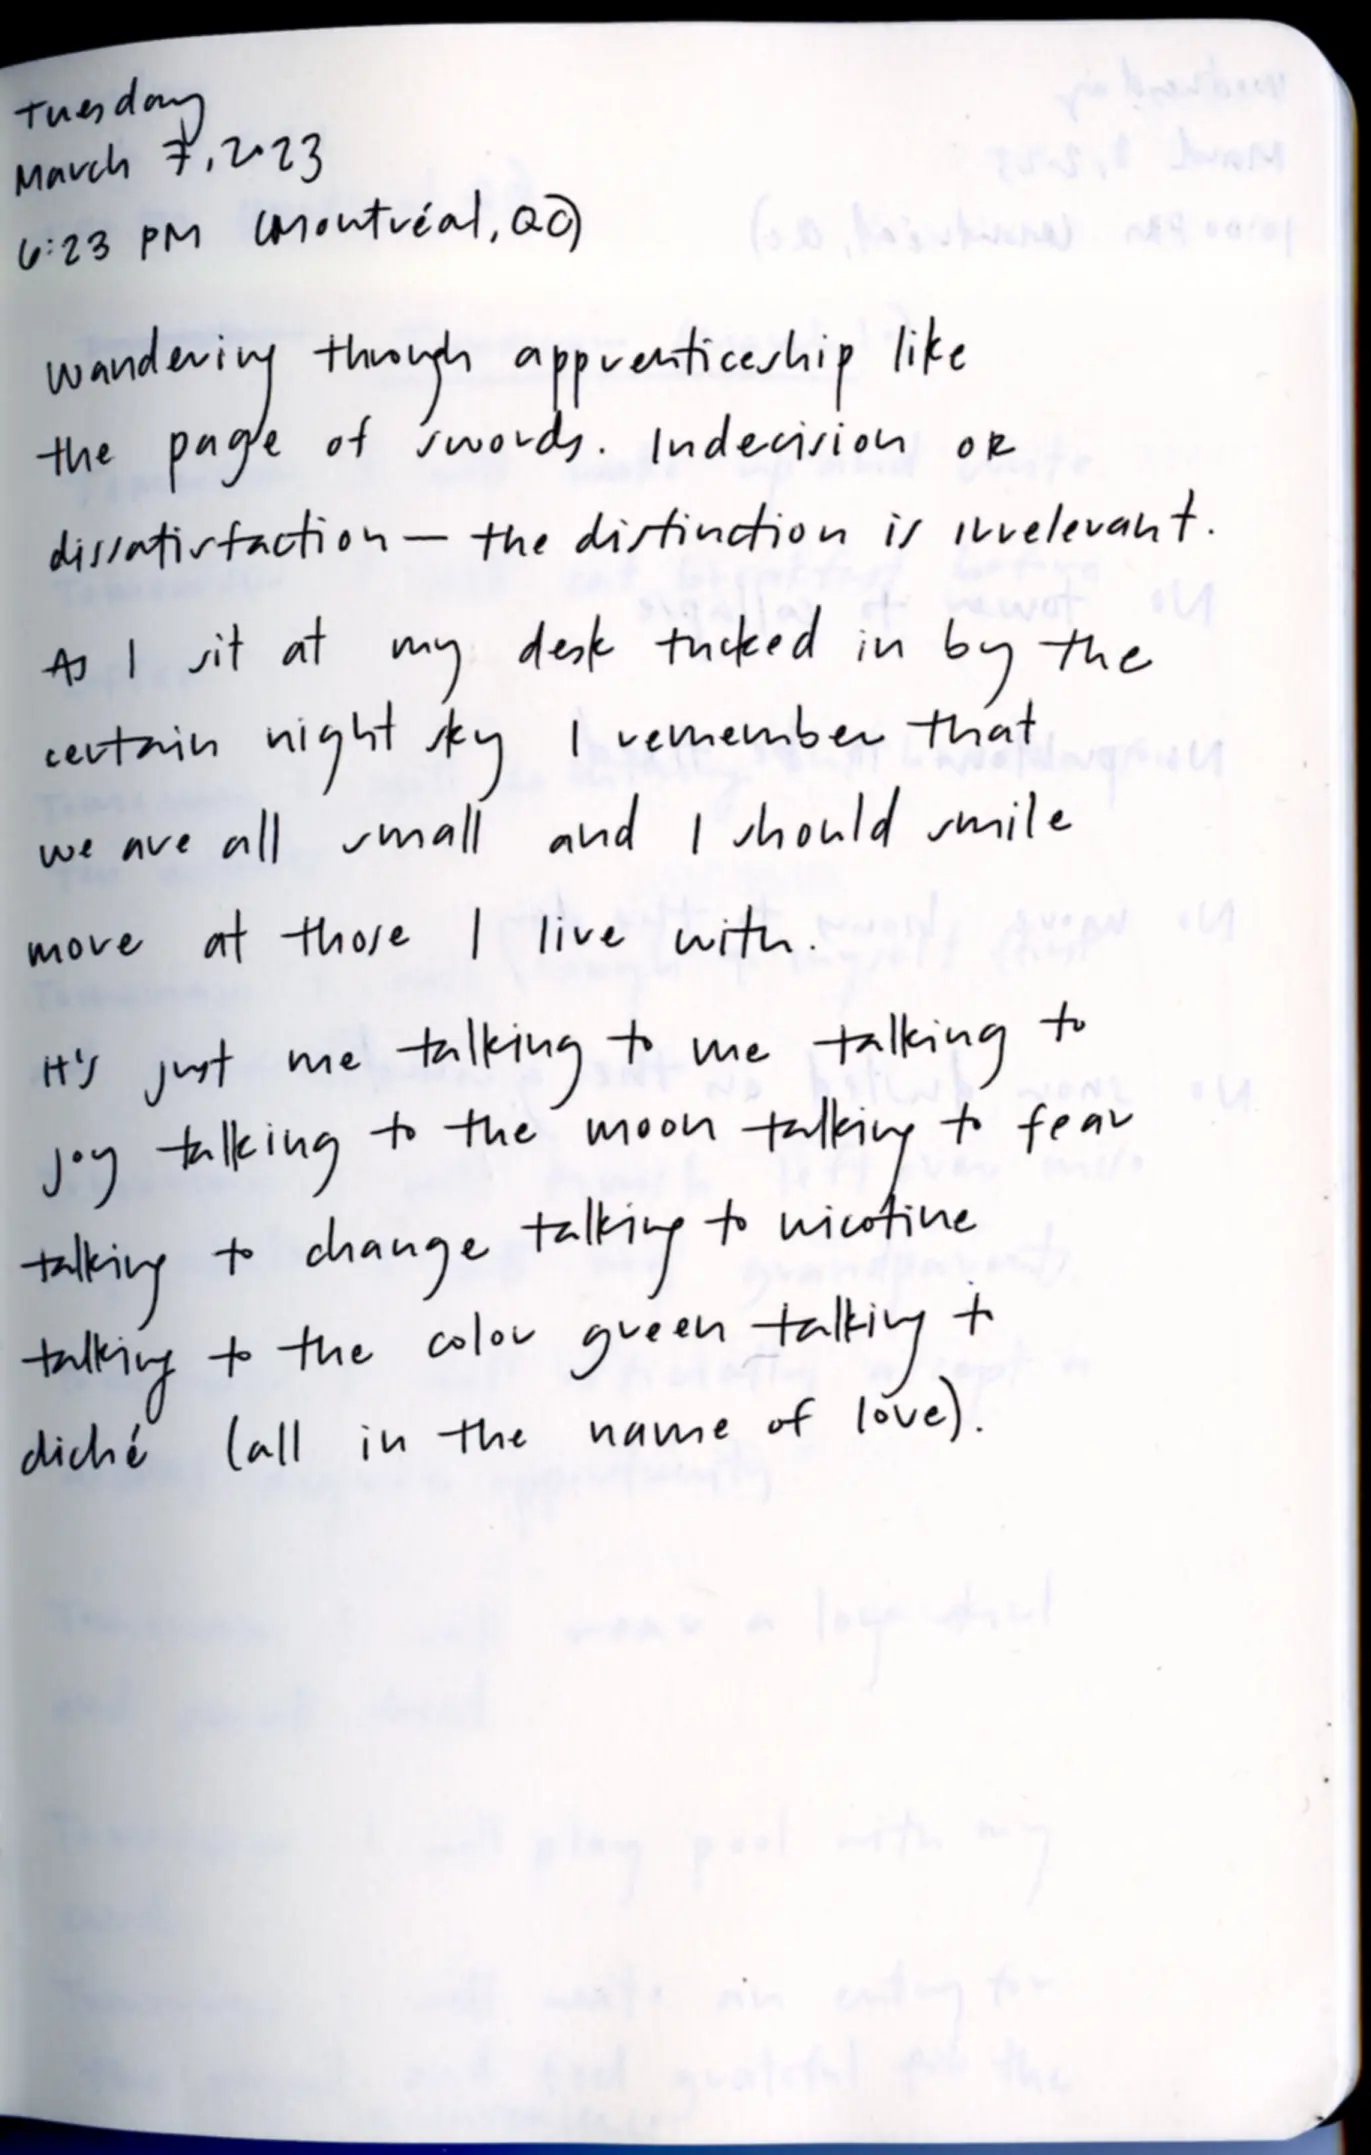 Tuesday
March 7, 2023
6:23 PM (Montréal, QC)
Wandering through apprenticeship like
the page of swords. Indecision OR
dissatisfaction — the distinction is irrelevant.
As I sit at my desk tucked in by the
certain night sky I remember that
we are all small and I should smile
more at those I live with.
It's just me talking to me talking to
joy talking to the moon talking to fear
talking to change talking to nicotine
talking to the color green talking to
cliché (all in the name of love).